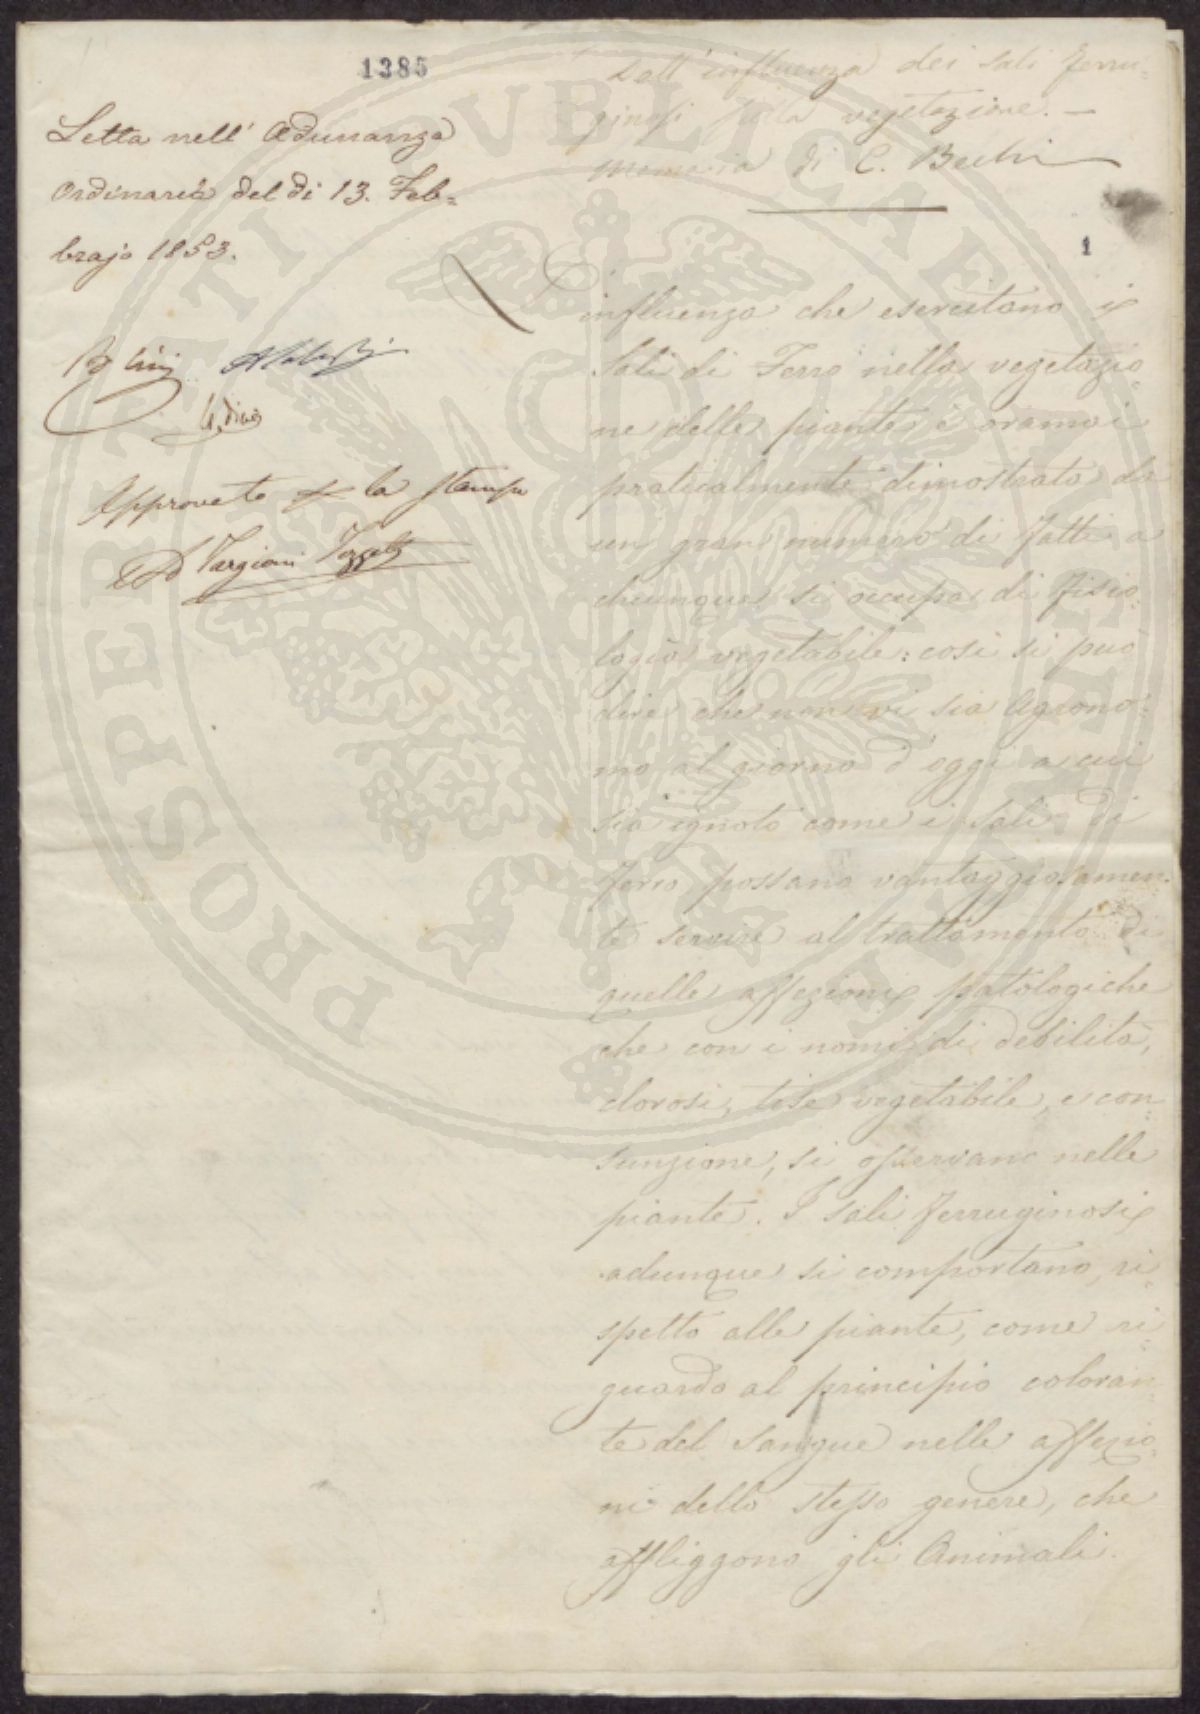 1385
Letta nell' Adunanza
Ordinaria del di 13. Feb-
brajo 1853.
Approvato per la stampa
Targioni Tozzetti
Dell' influenza dei sali ferru-
ginosi sulla vegetazione. —
Memoria di E. Bechi
1
L'influenza che esercitano i
Sali di Ferro nella vegetazio
ne delle piante è oramai
praticalmente dimostrata da
un gran numero di fatti a
chiunque si occupa di fisio-
logia vegetabile: così si può
dire che non vi sia Agrono-
mo al giorno d'oggi a cui
sia ignoto come i sali di
ferro possano vantaggiosamen-
te servire al trattamento di
quelle affezioni patologiche
che con i nomi di debilità,
clorosi, tise vegetabile, e con
sunzione, si osservano nelle
piante. I sali ferruginosi
adunque si comportano, ri
spetto alle piante, come ri
guardo al principio coloran
te del sangue nelle affezio
ni dello stesso genere, che
affliggono gli Animali.
PROSPERITATI PVBLICAE AVGENDAE